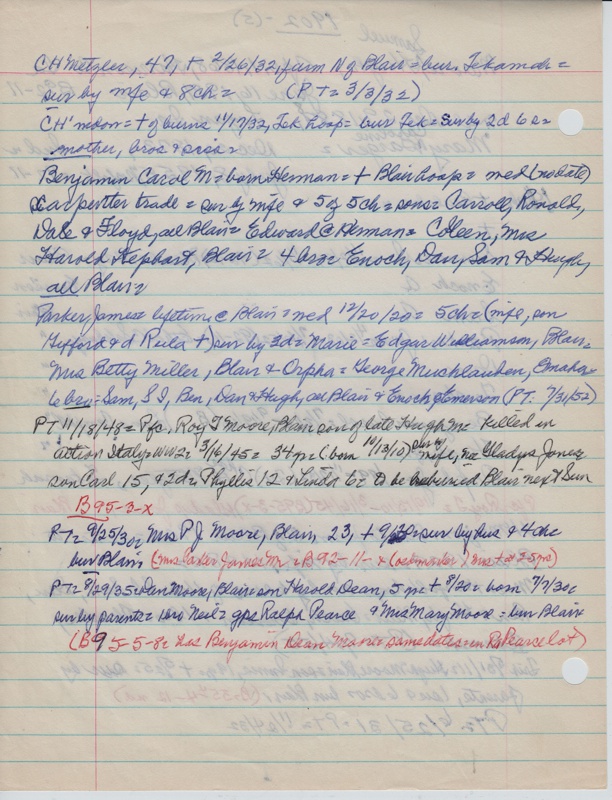 CH Metzler, 47, + 2/26/32, farm N of Blair = bur. Tekamah =
sur by wife & 8 ch = (PT = 3/3/32)
CH Moon = + of burns 11/17/32, Tek hosp = bur Tek = sur by 2d 6 s =
mother, bros & sis =
Benjamin Carol M = born Herman = + Blair hosp = med (no date)
carpenter trade = sur by wife & 5 of 5 ch = sons = Carroll, Ronald,
Dale & Floyd, all Blair = Edward C Herman = Coleen, Mrs
Harold Kephart, Blair = 4 bro = Enoch, Dan, Sam & Hugh,
all Blair =
Parker James = lifetime @ Blair = med 12/20/20 = 5 ch = (wife, son
Gifford & d Reila +) sur by 3d = Marie = Edgar Williamson, Blair =
Mrs Betty Miller, Blair & Orpha = George Omaha =
6 bro = Sam, S I, Ben, Dan & Hugh, all Blair & Enoch Emerson (PT. 7/31/52)
PT 11/18/48 = Pfc. Roy T Moore, Blair son of late Hugh M = killed in
action Italy = WW2 = 3/16/45 = 34 yr = (born 10/13/10) sur by wife, nee Gladys Jones
son Carl 15, & 2d = Phyllis 12 & Linda 6 = to be reburied Blair next Sun
B95-3-x
PT = 9/25/30 = Mrs P J Moore, Blair 23, + 9/ = sur by hus & 4 ch =
bur Blair (Mrs Parker James M = B92-11-
PT = 8/29/35 = Dan Moore, Blair = son Harold Dean, 5 yr + 8/20 = born 7/7/30 =
sur by parents = bro Neil = gps Ralph Pearce & Mrs Mary Moore = bur Blair
(B95-5-8 = has Benjamin Dean Moore = same dates = in R Pearce lot)